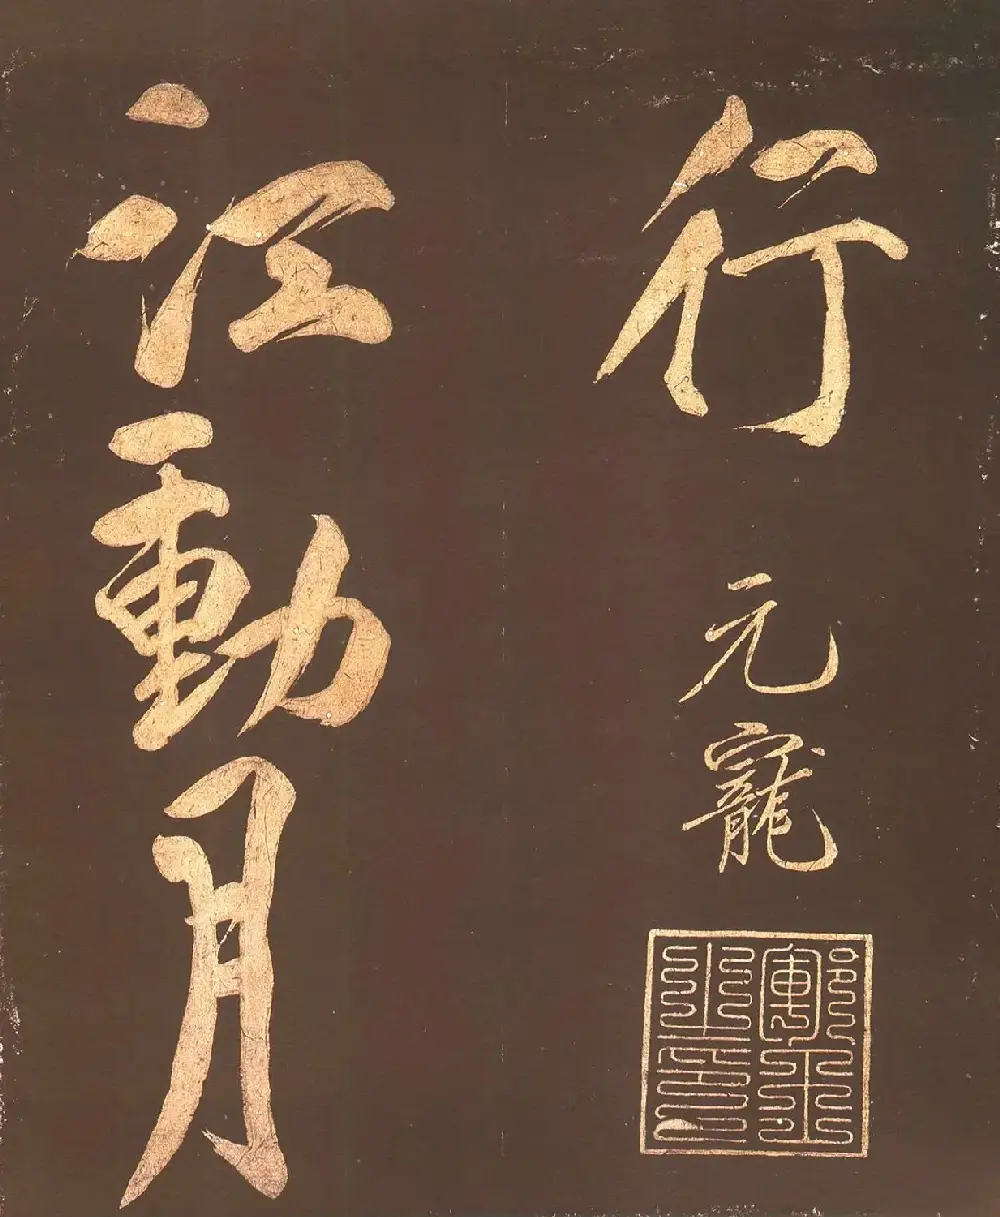 行
元寵
江動月